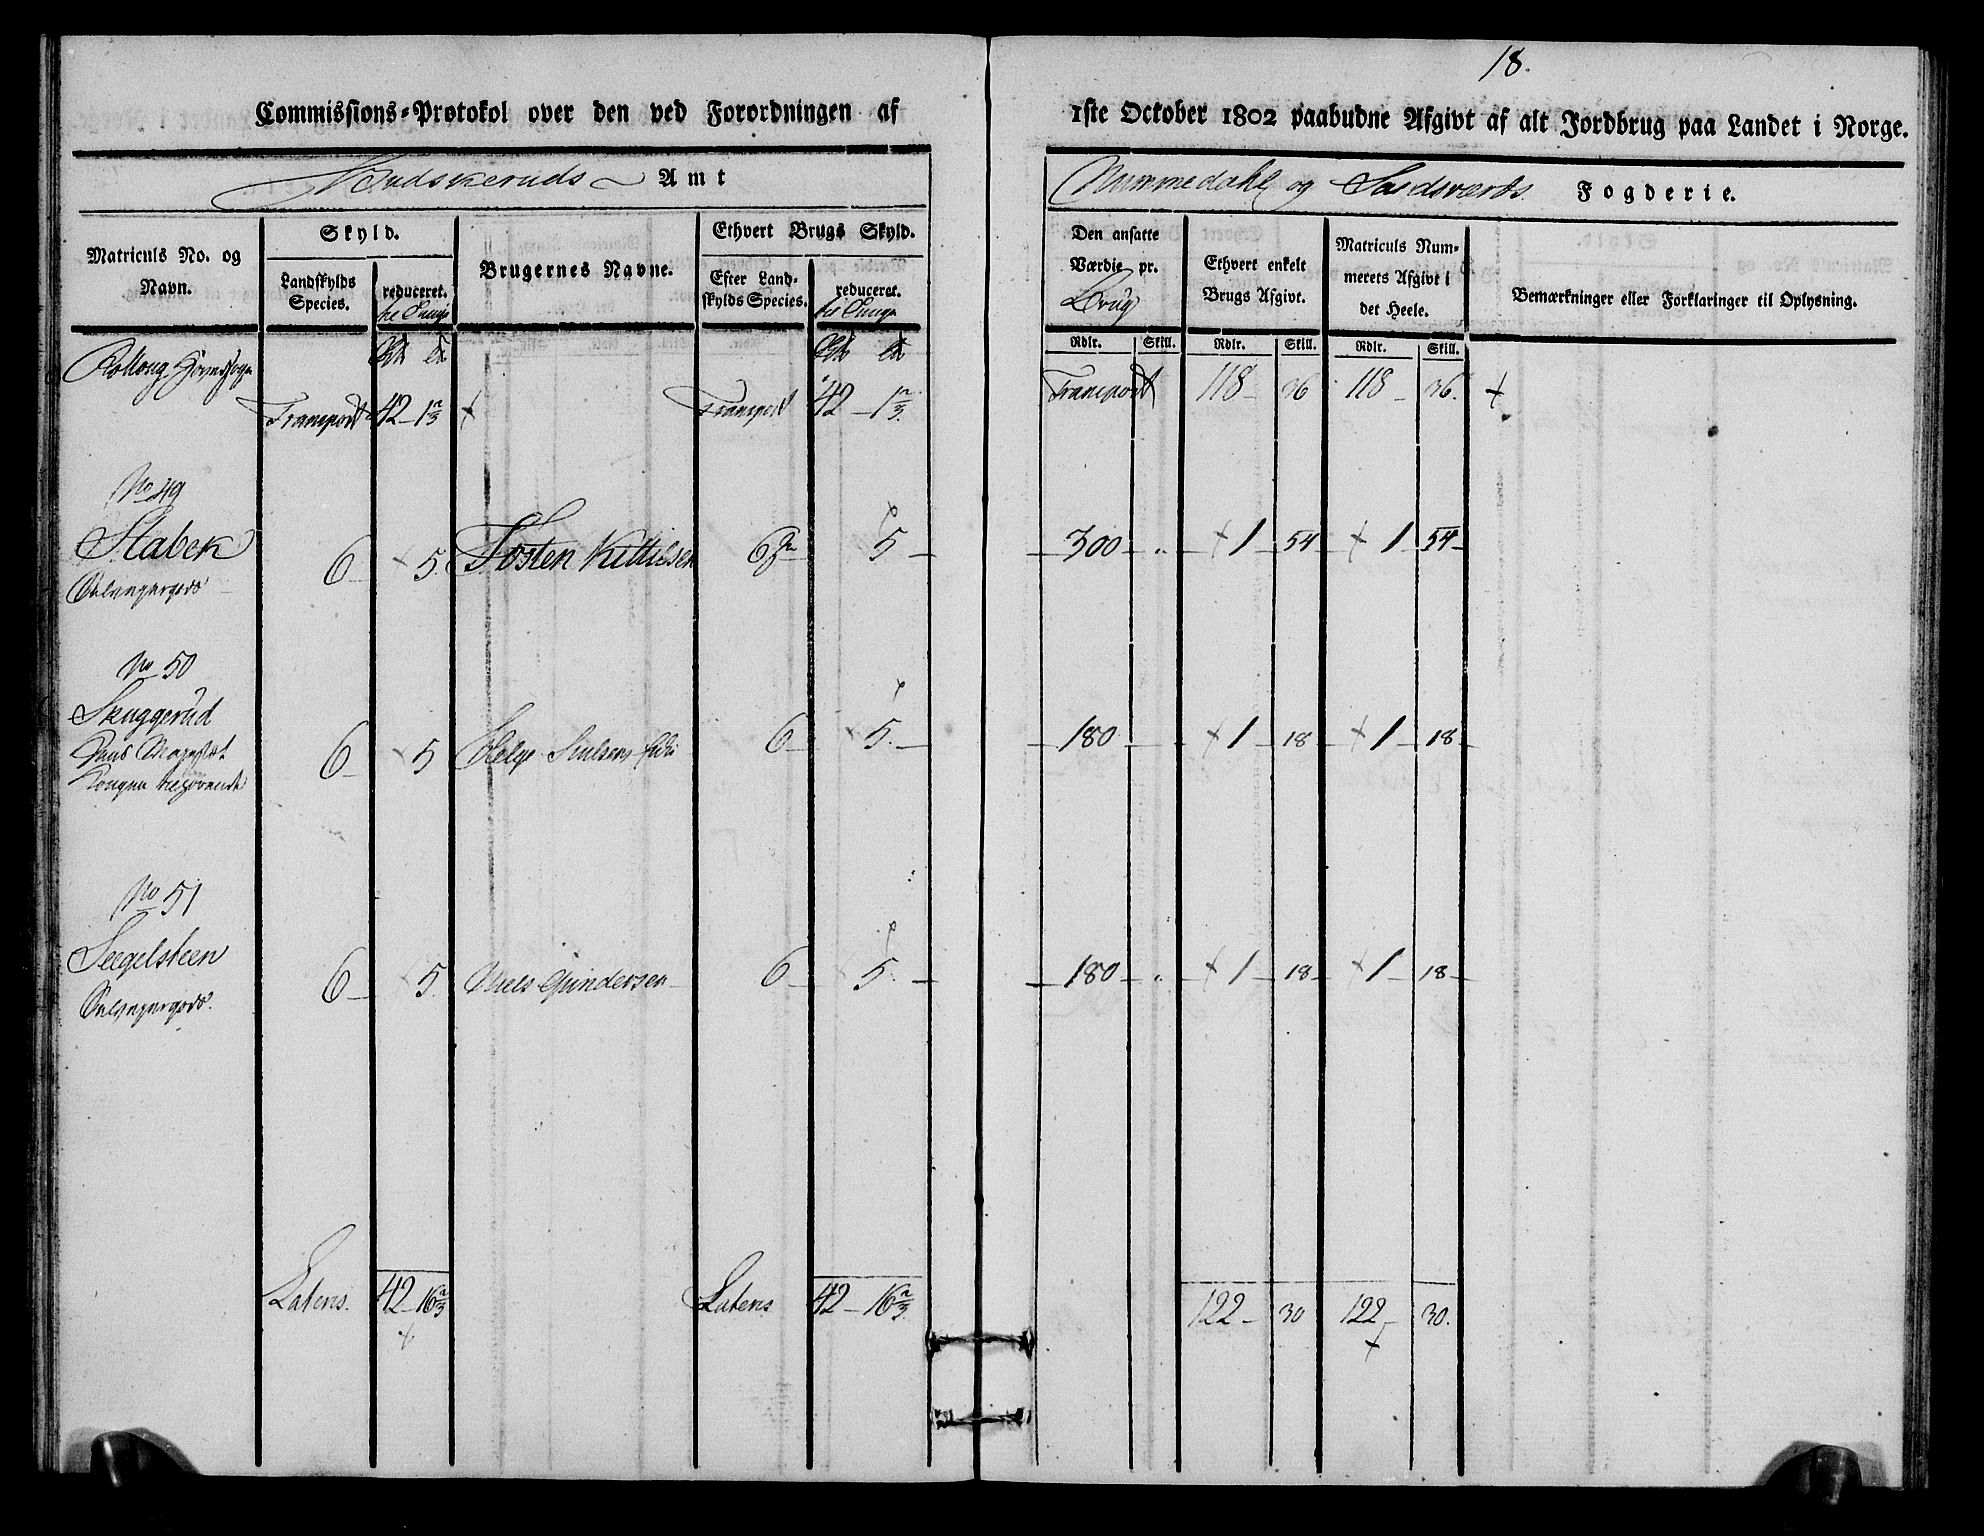 18.
Commissions-Protokol over den ved Forordningen af 1ste October 1802 paabudne Afgivt af alt Jordbrug paa Landet i Norge.
Budskeruds Amt
Nummedahls og Sandsværds Fogderie.
Matriculs No. og Navn.
Skyld.
Landskylds Species.
reduceret.
til Tunge
Brugernes Navne.
Ethvert Brugs Skyld.
Efter Landskylds Species.
reduceret.
til Tunge
Den ansatte Værdie pr.
Brug
Ethvert enkelt Brugs Afgivt.
Matriculs Nummerets Afgivt i det Heele.
Bemærkninger eller Forklaringer til Oplysning.
Rdlr. Skill. Rdlr. Skill. Rdlr. Skill.
Rollong Hovedsogn
Transport 42 - 1 2/3 + Transport 42 - 1 2/3 Transport 118 - 36 118 - 36. +
No 49
Stabek 6 - + 5. Tosten Kittilsen 6 5 - 300 - „ + 1 54 + 1 54 -
Selveyergods
No 50
Skuggerud 6 - + 5 Helge 6 - + 5. - 180 + 1 18 + 1 18 -
Hans Mayestæt
Kongen tilhørende
No 51
Seegelsteen 6 - + 5. Niels Gundersen 6 - 5. - 180 - „ + 1 18 - + 1 18 -
Selveyergods.
Lateris. 42 - 16 2/3 Lateris 42 - 16 2/3 122 - 30 122 - 30.
+ +